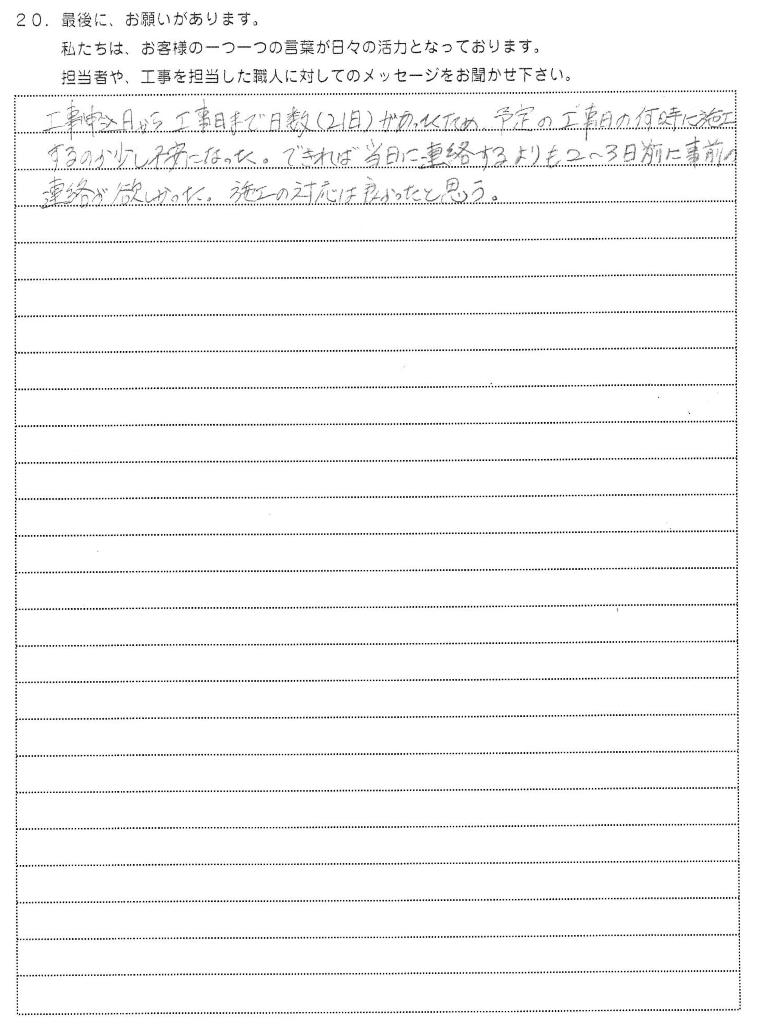 20．最後に、お願いがあります。
私たちは、お客様の一つ一つの言葉が日々の活力となっております。
担当者や、工事を担当した職人に対してのメッセージをお聞かせ下さい。
工事申込日から工事日まで日数(21日)があったため、予定の工事日の何時に施工
するのか少し不安になった。できれば当日に連絡するよりも2～3日前に事前の
連絡が欲しかった。施工の対応は良かったと思う。